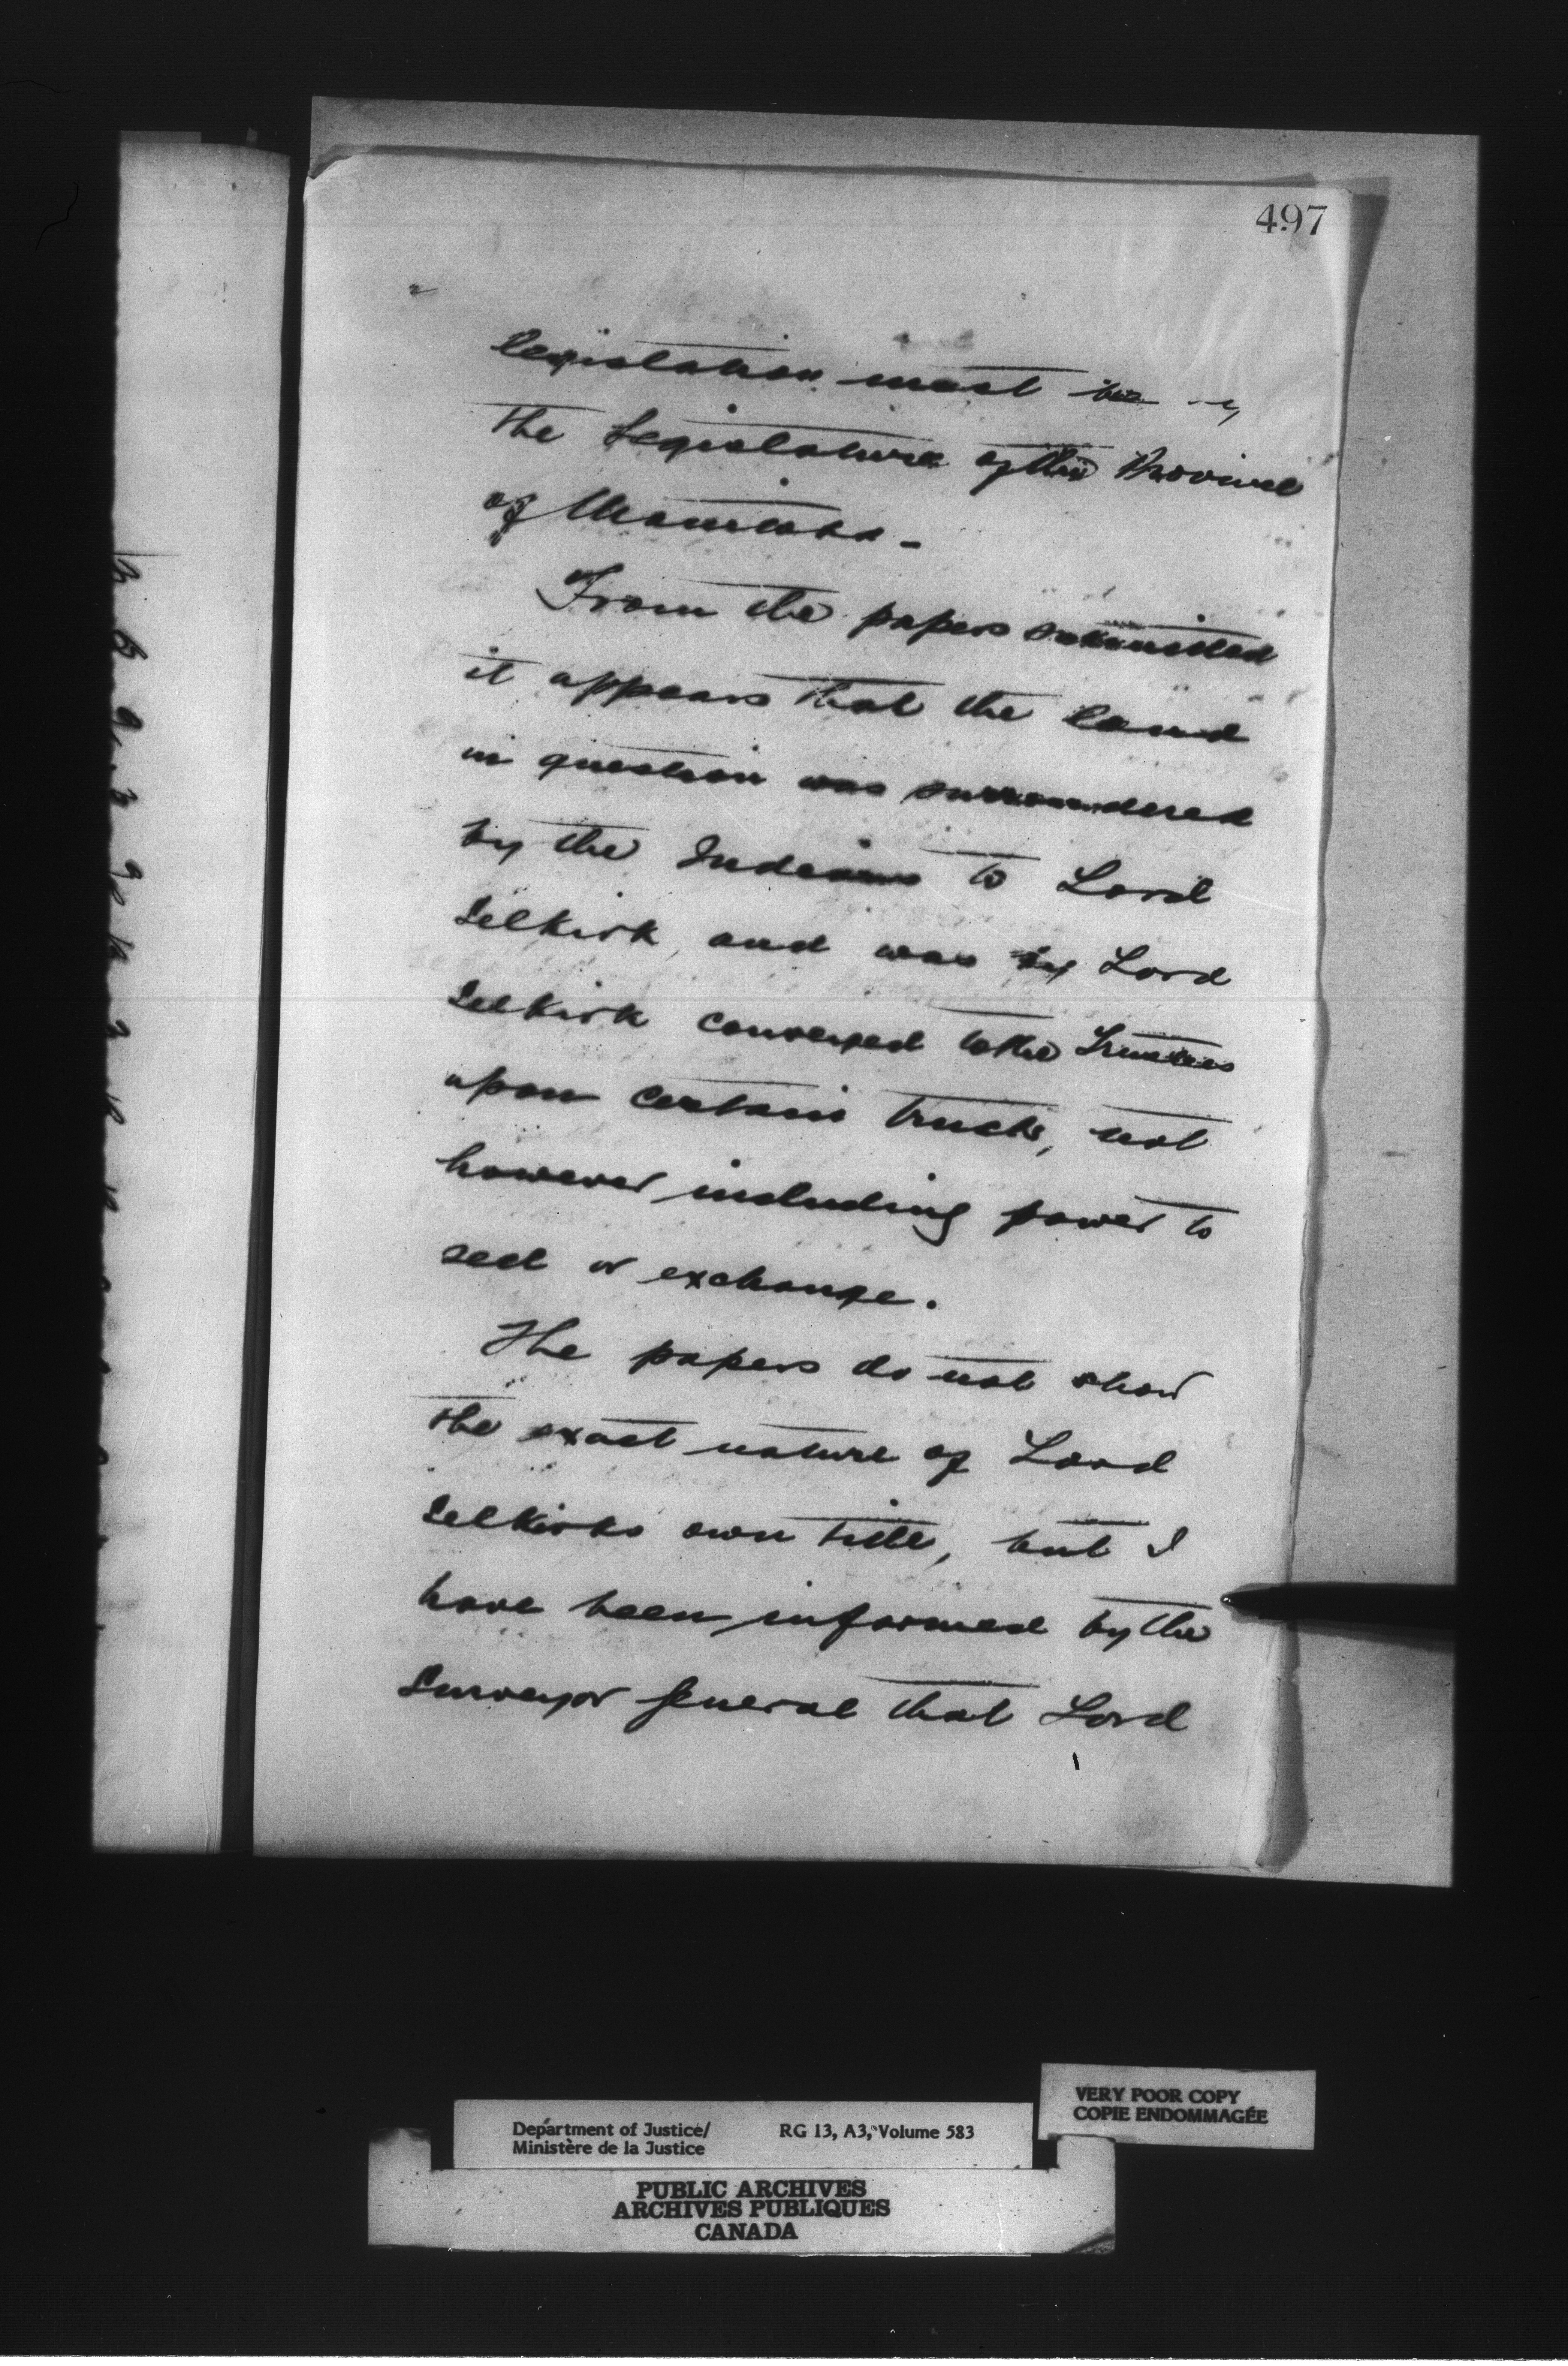 497
2
legislation must be by
the Legislature of the Province
of Manitoba -
From the papers submitted
it appears that the land
in question was surrendered
by the Indians to Lord
Selkirk, and was by Lord
Selkirk conveyed to the Trustees
upon certain trusts, not
however including power to
sell or exchange.
The papers do not show
the exact nature of Lord
Selkirks own title, but I
have been informed by the
Surveyor General that Lord
VERY POOR COPY
COPIE ENDOMMAGÉE
Department of Justice/ RG 13, A3, Volume 583
Ministère de la Justice
PUBLIC ARCHIVES
ARCHIVES PUBLIQUES
CANADA